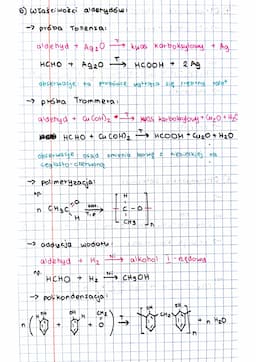 6) właściwości aldehydów:
→ próba Tollensa:
aldehyd + Ag₂O →T kwas karboksylowy + Ag
HCHO + Ag₂O →T HCOOH + 2 Ag
obserwacje: na probówce wytrąca się srebrny
→ próba Trommera:
aldehyd + Cu(OH)₂ →T kwas karboksylowy + Cu₂O + H₂O
HCHO + Cu(OH)₂ →T HCOOH + Cu₂O + H₂O
obserwacje: osad zmienia barwę z niebieskiej na
ceglasto-czerwoną
→ polimeryzacja:
np.
n CH₃C O H → T, p [ H C - O CH₃ ]n
→ addycja wodoru:
aldehyd + H₂ →Ni alkohol I-rzędowy
np.
HCHO + H₂ →Ni CH₃OH
→ polikondensacja:
n ( OH + OH + C O ) →T OH CH₂ OH + n H₂O